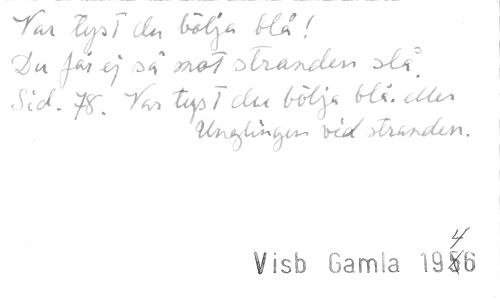 Var tyst du bölja blå!
Du får ej så mot stranden slå.
Sid. 78. Var tyst du bölja blå. eller
Ynglingen vid stranden.
4
Visb Gamla 1986